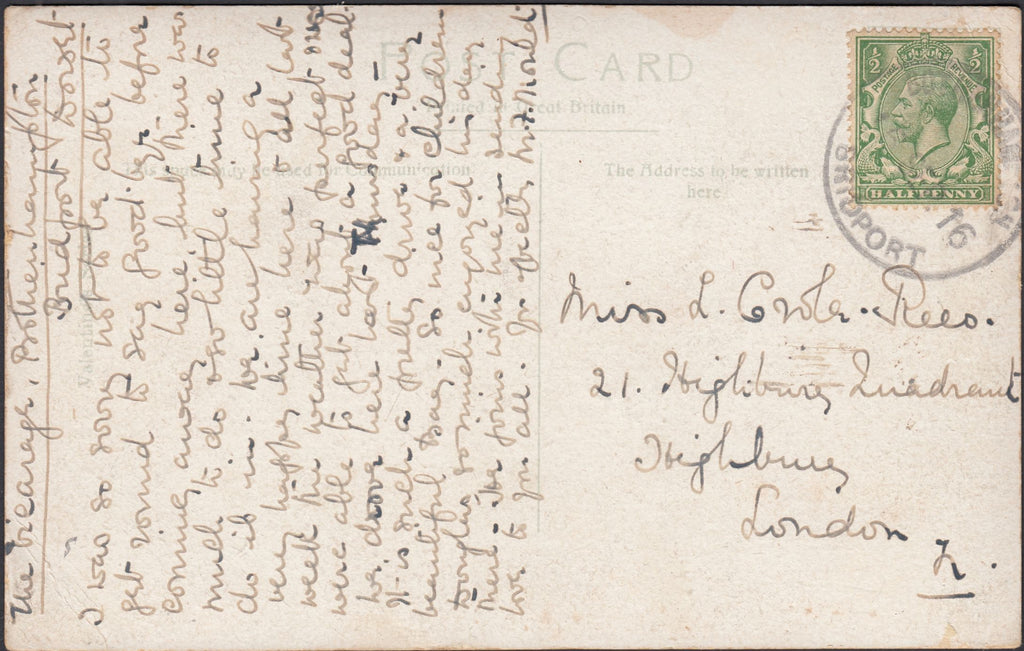 POST CARD
Printed in Great Britain
This space may be used for Communication
The Address to be written
here
HALFPENNY
BRIDPORT
16
The Vicarage. Bothenhampton
Bridport Dorset
I was so sorry not to be able to
get round to say good-bye before
coming away here, but there was
much to do & so little time to
do it in. We are having a
very happy time here & all last
week the weather was perfect & we
were able to get about a good deal
we drove here last Thursday
It is such a pretty drive & a very
beautiful Bay. So nice for children
Douglas so much enjoyed his day
there. He joins with me sending
love to you all. Yrs affectly
Miss L. Rees.
21. Highbury Quadrant
Highbury
London
N.